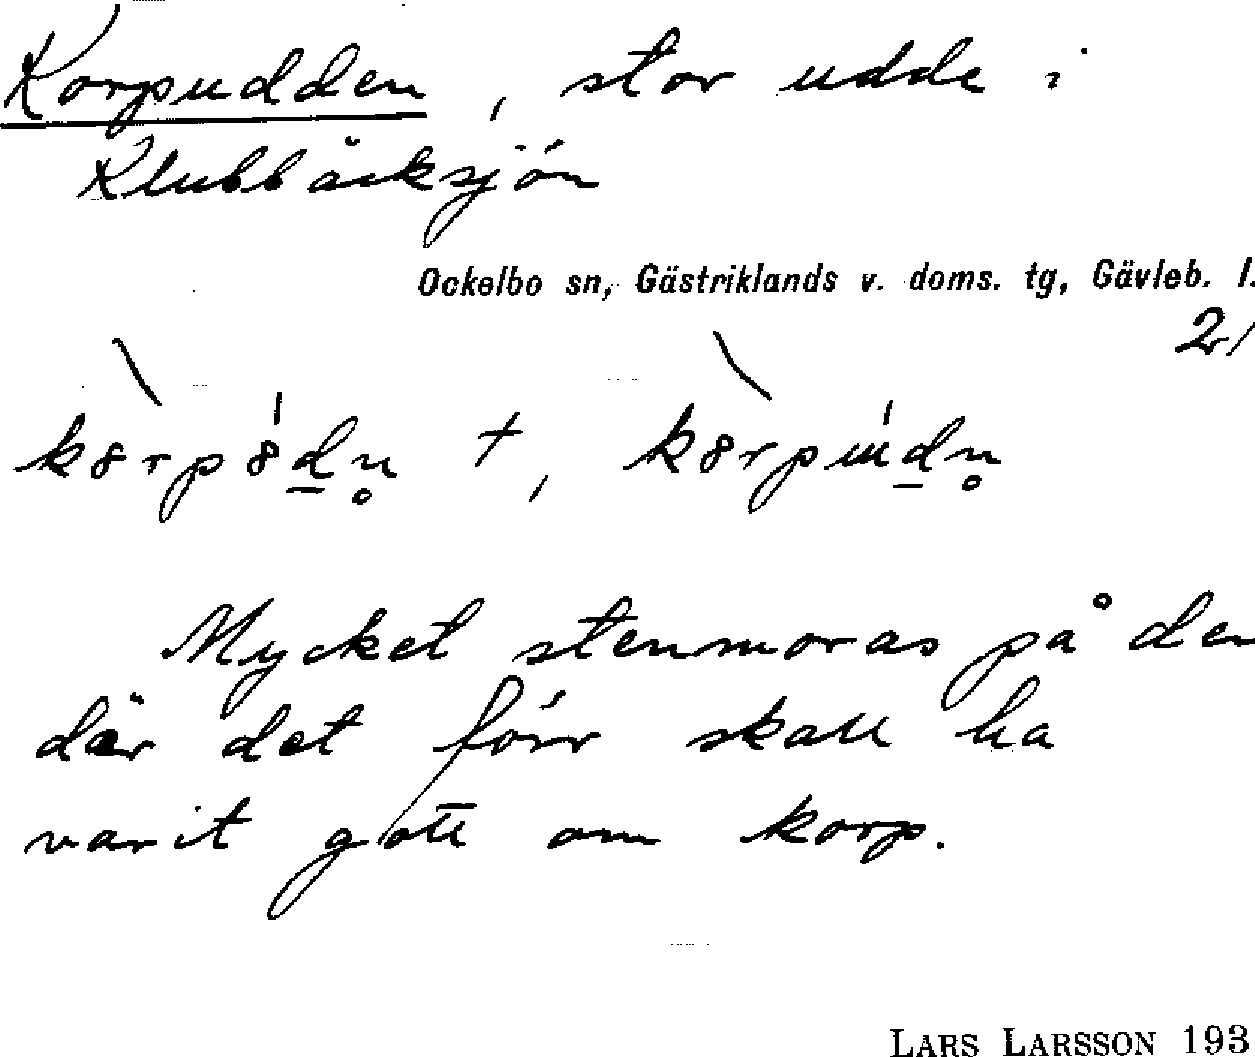 Korpudden, stor udde i
Klubbäcksjön
Ockelbo sn, Gästriklands v. doms. tg, Gävleb. l.
21
Mycket stenmoras på den
där det förr skall ha
varit gott om korp.
LARS LARSSON 193